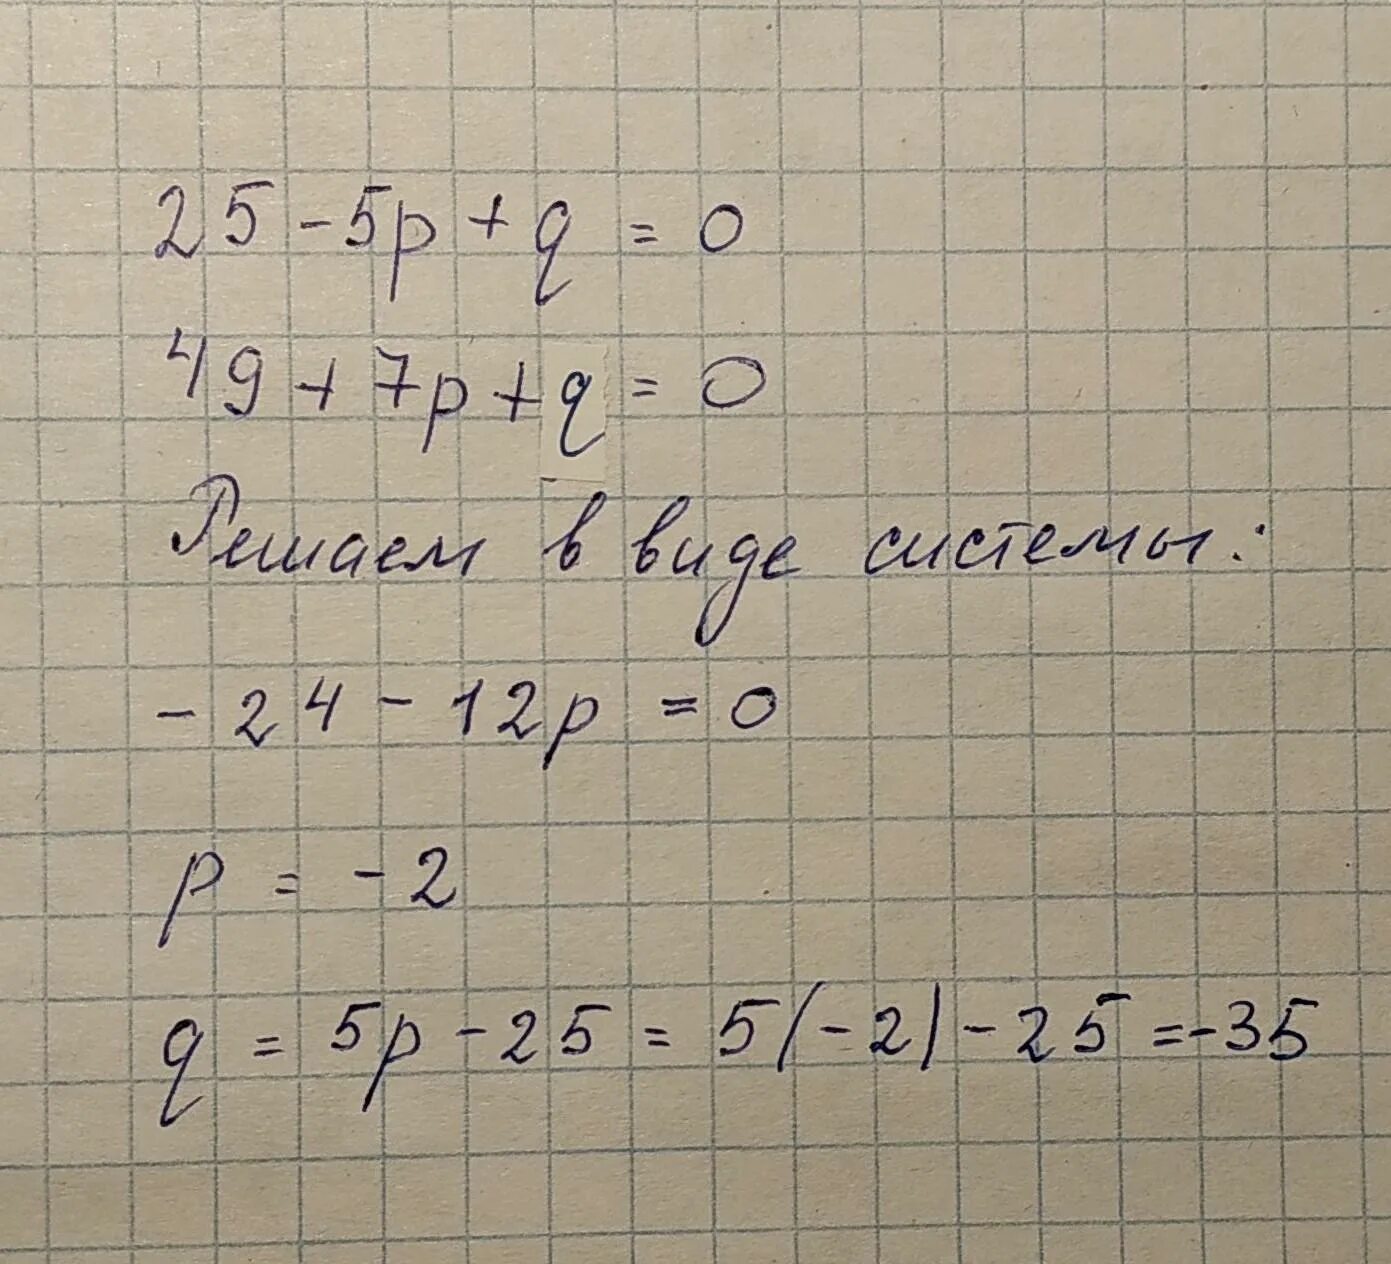 25 - 5p + q = 0
49 + 7p + q = 0
Решаем в виде системы:
- 24 - 12p = 0
p = - 2
q = 5p - 25 = 5(-2) - 25 = -35